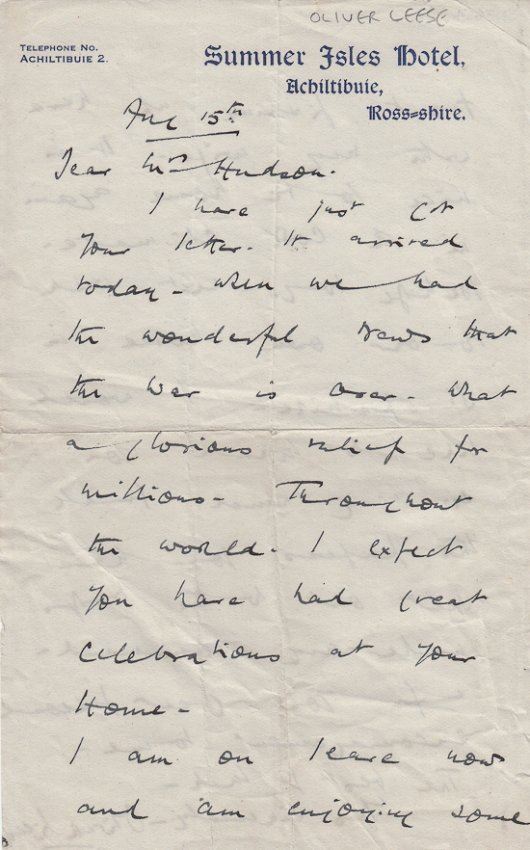 OLIVER LEESE
TELEPHONE NO.
ACHILTIBUIE 2.
Summer Isles Hotel,
Achiltibuie,
Ross=shire.
Aug 15th
Dear Mrs Hudson.
I have just got
your letter. It arrived
today - when we had
the wonderful news that
the war is over. What
a glorious relief for
millions - throughout
the world. I expect
you have had great
celebrations at your
Home -
I am on leave now
and am enjoying some